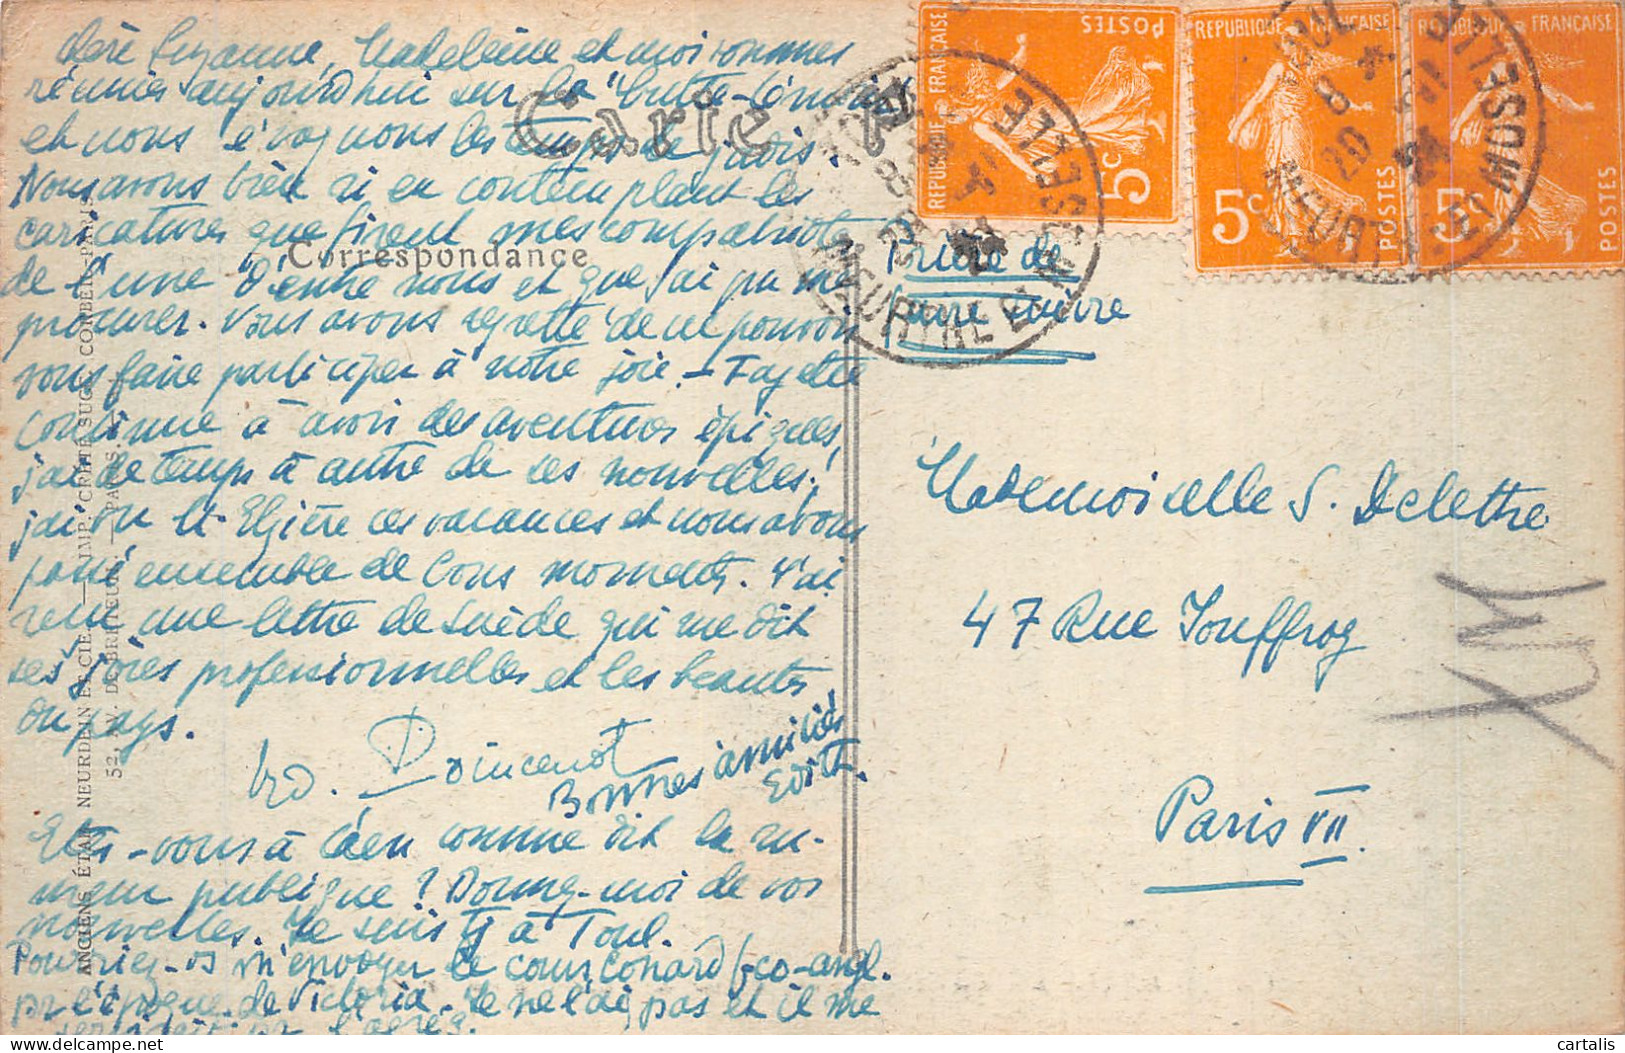 Chère Suzanne, Madeleine et moi sommes
réunies aujourd'hui sur la butte-témoin
et nous évoquons les temps de jadis.
Nous avons bien ri en contemplant les
caricatures que firent mes compatriotes
de l'une d'entre nous et que j'ai pu me
procurer. Nous avons regretté de ne pouvoir
vous faire participer à notre joie. - Fayette
continue à avoir des aventures épiques,
j'ai de temps à autre de ses nouvelles;
j'ai vu ces vacances et nous avons
passé ensemble de bons moments. J'ai
reçu une lettre de Suède qui me dit
ses joies professionnelles et les beautés
du pays.
Poincenot
Bonnes amitiés
Edith.
Etes-vous à Caen comme dit la ru-
meur publique? Donnez-moi de vos
nouvelles. Je suis à Toul.
Pourriez-vs m'envoyer le cours Conard fco-angl.
pr l'époque de Victoria. Je ne l'ai pas et il me
servirait pr l'agrég.
Carte
Correspondance
ANCIENS ÉTAB. NEURDEIN ET CIE. — IMP. CRÉTÉ SUCC. CORBEIL-PARIS
52, AV. DE BRETEUIL. — PARIS.
REPUBLIQUE FRANÇAISE
POSTES
5c
REPUBLIQUE FRANÇAISE
5c
POSTES
REPUBLIQUE FRANÇAISE
5c
POSTES
TOUL
MEURTHE ET MOSELLE
TOUL
MEURTHE ET MOSELLE
Prière de
faire suivre
Mademoiselle S. Delettre
47 Rue Jouffroy
Paris VII.
cartalis